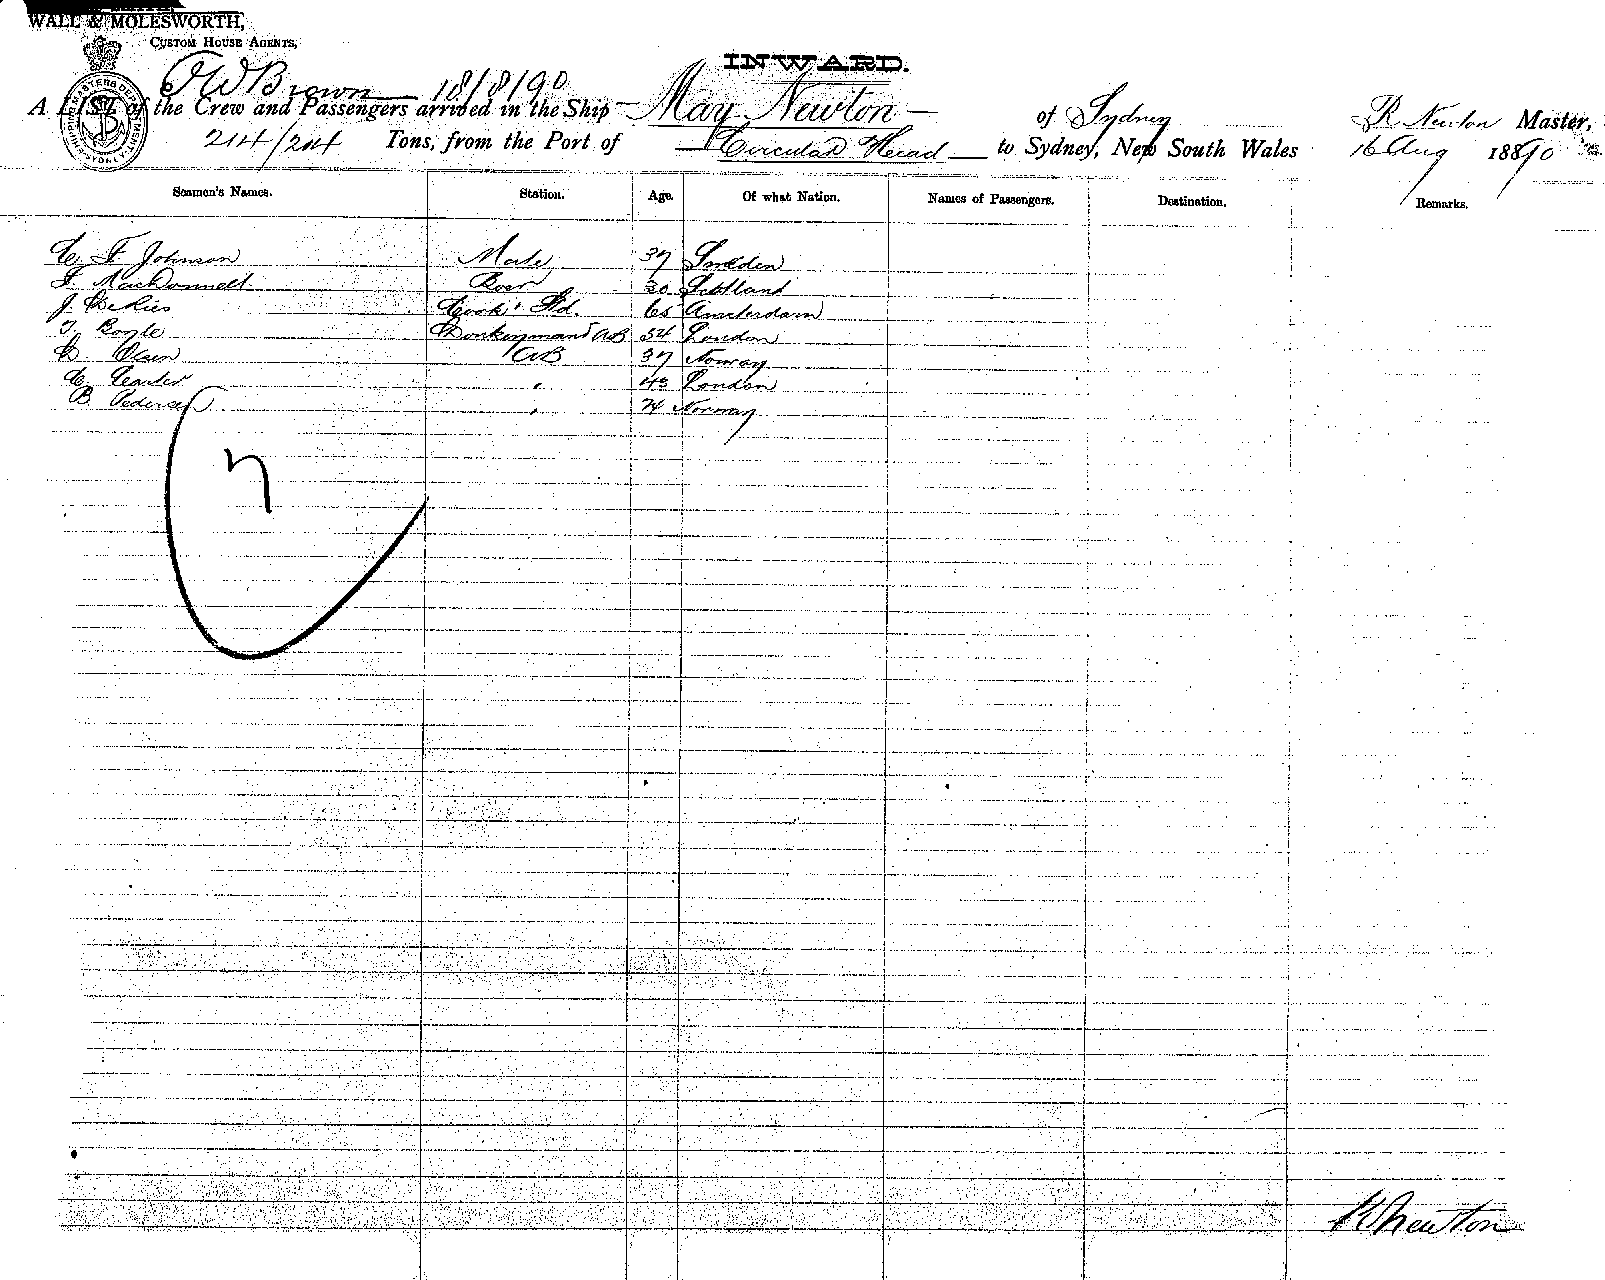 WALL & MOLESWORTH,
CUSTOM HOUSE AGENTS,
INWARD.
Brown 18/8/90
A LIST of the Crew and Passengers arrived in the Ship May Newton of Sydney R Newton Master,
214/204 Tons, from the Port of Circular Head to Sydney, New South Wales 16 Aug 1890
Seamen's Names. Station. Age. Of what Nation. Names of Passengers. Destination. Remarks.
C F Johnson Mate 37 Sweden
MacDonnell 30 Scotland
J DeRies Cook & Std. 65 Amsterdam
T. Boyle Donkeyman & AB 54 London
Olsen AB 37 Norway
C 〃 43 London
B. Pedersen 〃 24 Norway
7
R Newton